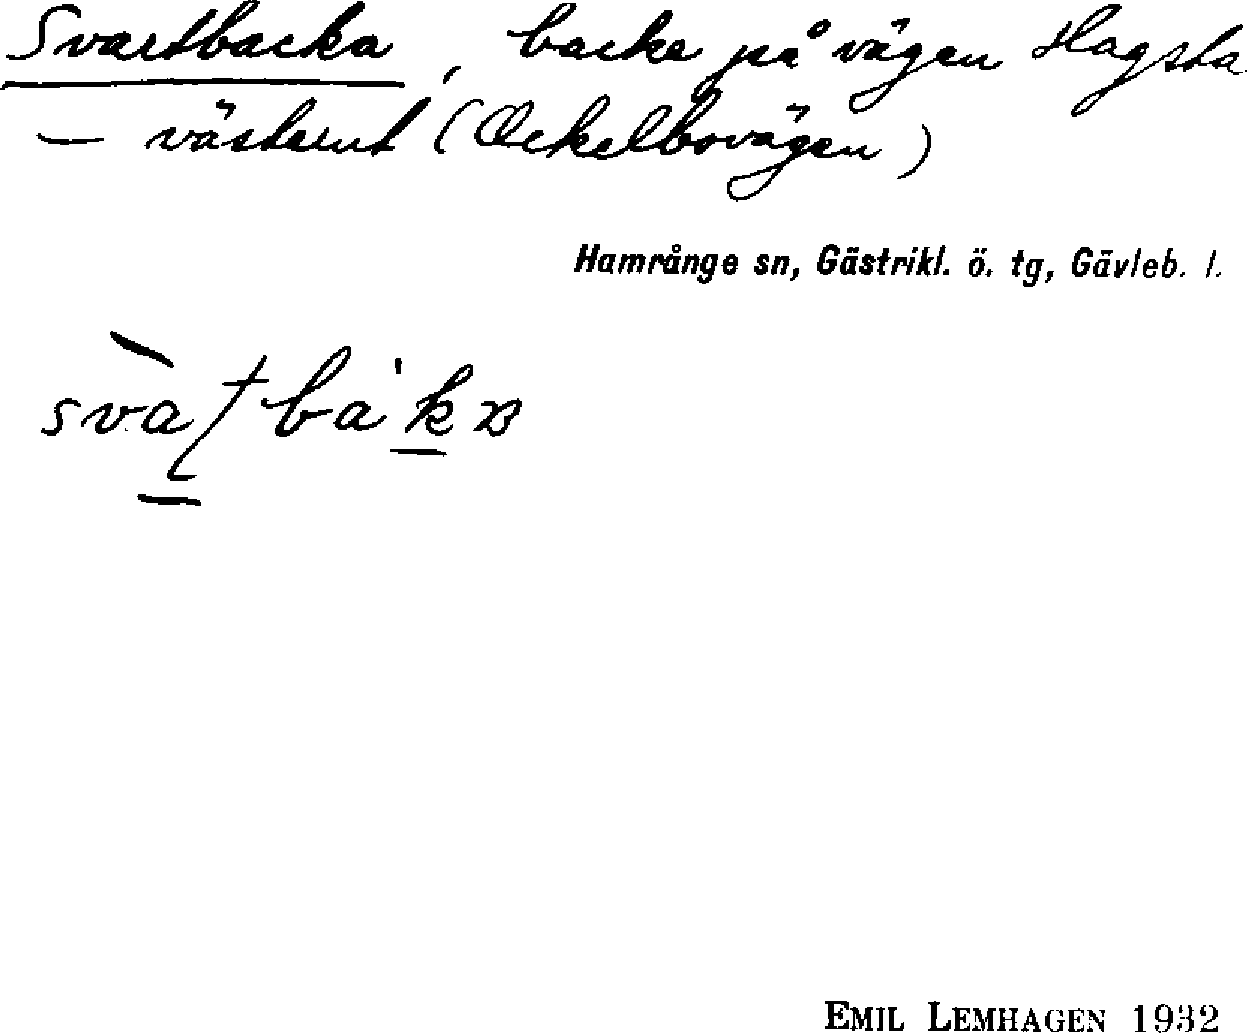 Svartbacka, backe på vägen Hagsta
— västerut (Ockelbovägen)
Hamrånge sn, Gästrikl. ö. tg, Gävleb. l.
EMIL LEMHAGEN 1932